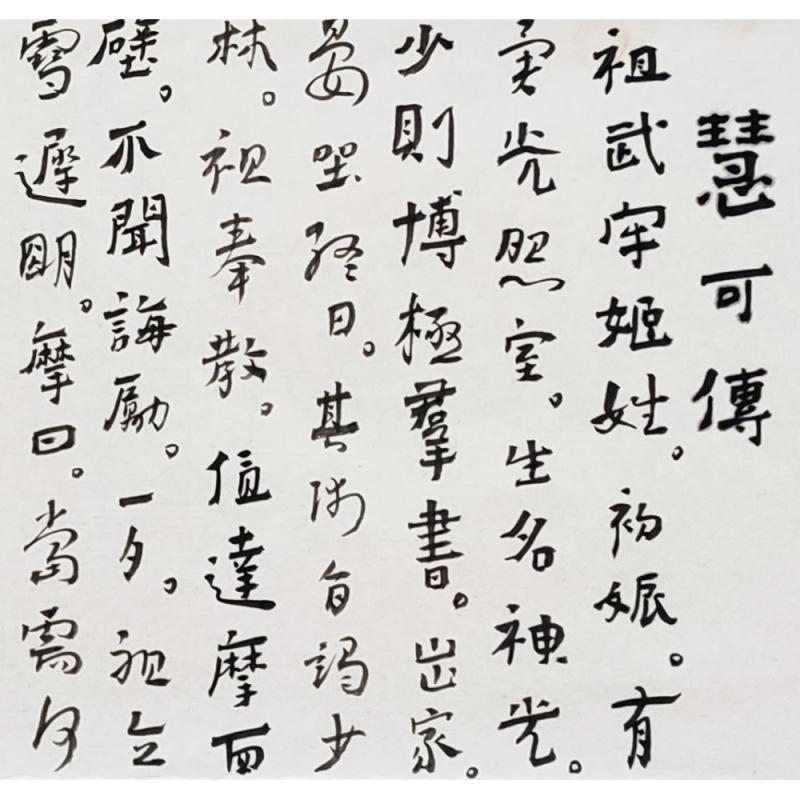 慧可傳
祖武牢姬姓。初娠。有
異光照室。生名神光。
少則博極羣書。出家。
晏坐終日。其師旨謁少
林。祖奉教。值達摩面
壁。不聞誨勵。一夕。祖立
雪遲明。摩曰。當需何